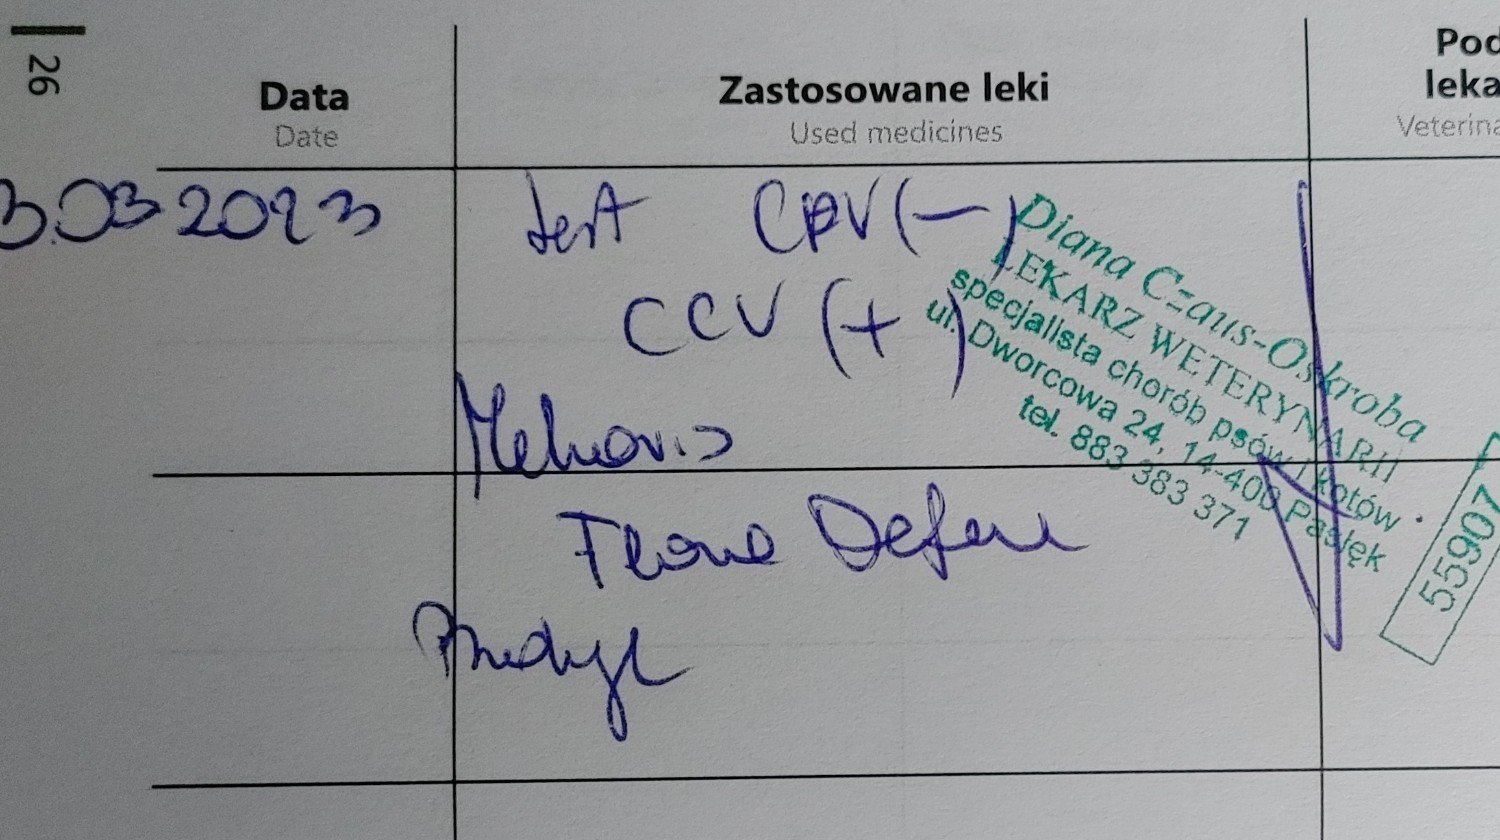 26
Data
Date
Zastosowane leki
Used medicines
Pod
leka
Veterina
3.03 2023
test CPV (-)
CCV (+)
Flora Defense
Diana Czaus-Oskroba
LEKARZ WETERYNARII
specjalista chorób psów i kotów
ul. Dworcowa 24, 14-400 Pasłęk
tel. 883 383 371
55907